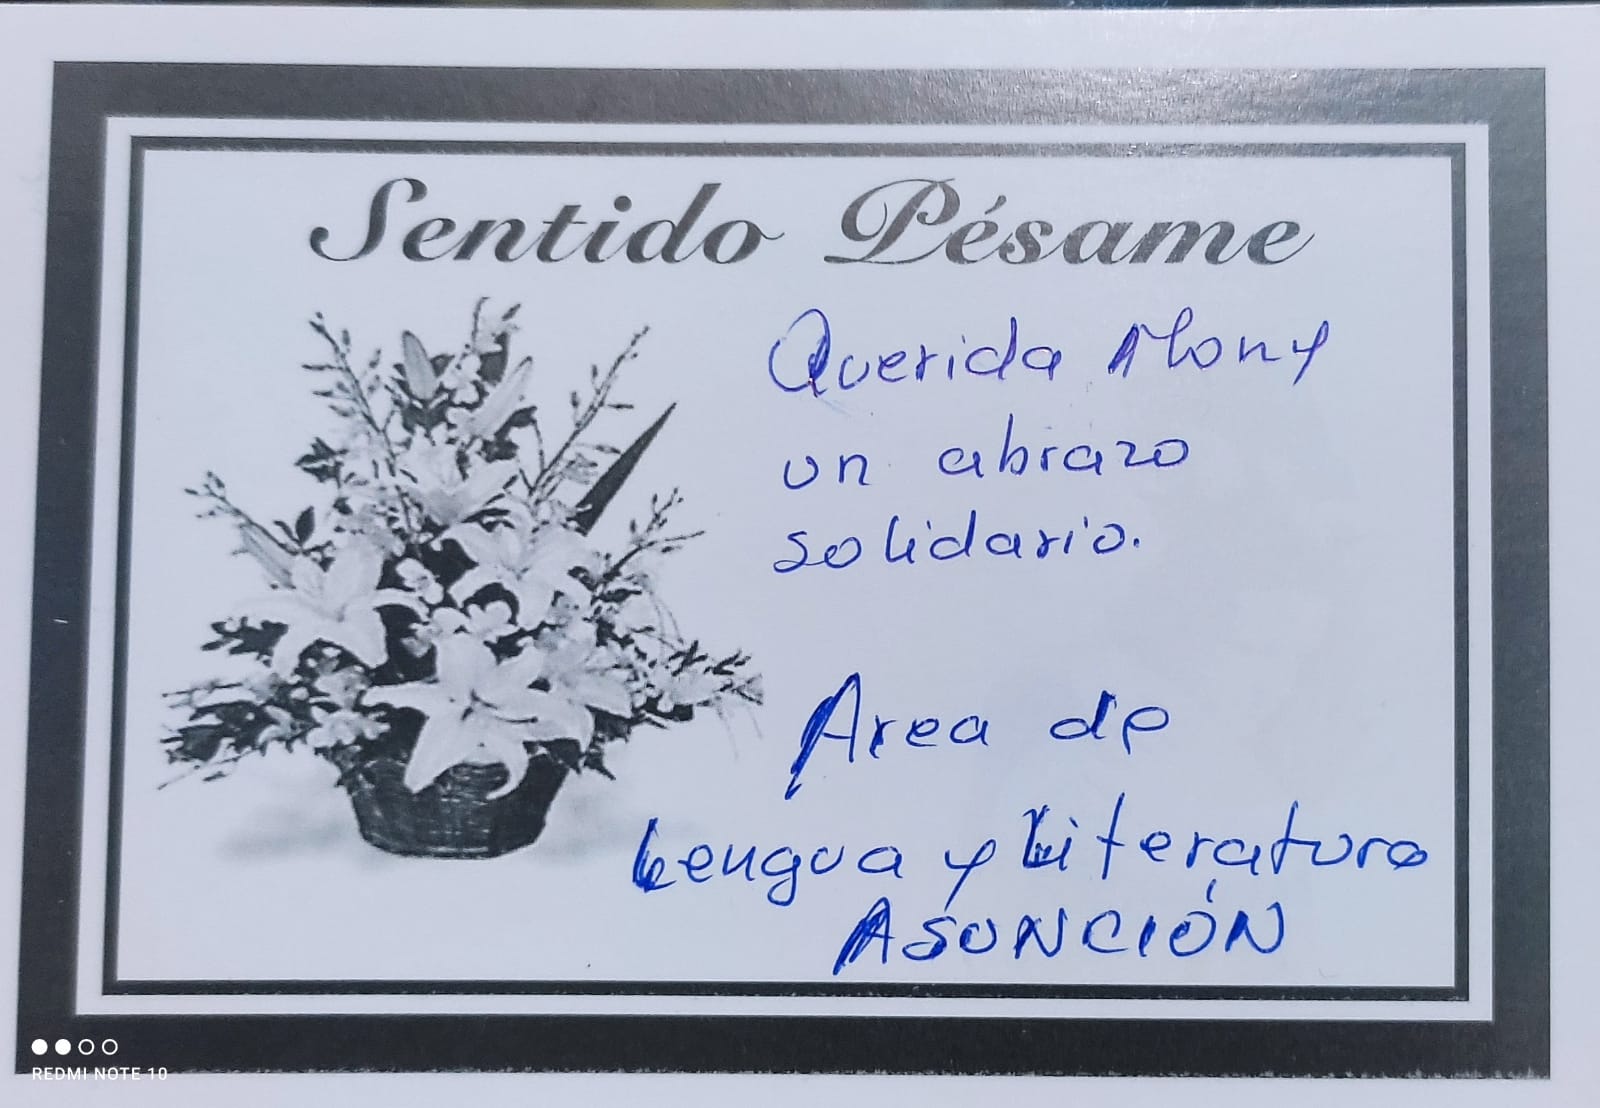 Sentido Pésame
Querida Mony
un abrazo
solidario.
Area de
Lengua y Literatura
ASUNCIÓN
REDMI NOTE 10